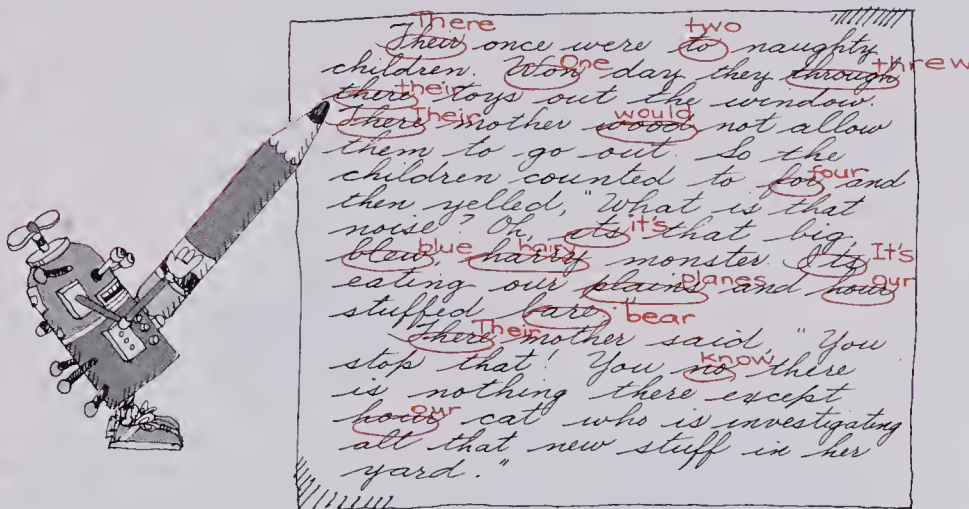 There two
Their once were to naughty
children. Won One day they through threw
there their toys out the window.
There Their mother wood would not allow
them to go out. So the
children counted to for four and
then yelled, "What is that
noise? Oh, its it's that big,
blew, blue harry hairy monster. Its It's
eating our plains planes and hour our
stuffed bare." bear
There Their mother said, "You
stop that! You no know there
is nothing there except
hour our cat who is investigating
all that new stuff in her
yard."